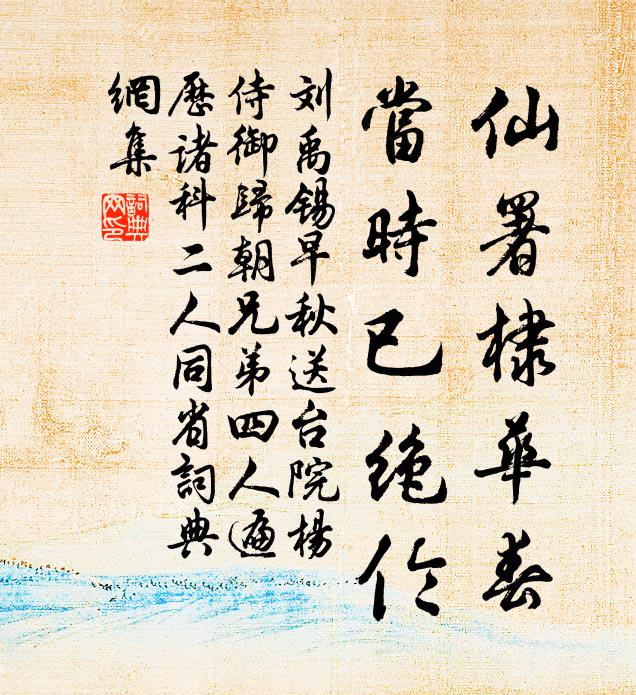 仙署棣華春
當時已絶伦
刘禹錫早秋送台院楊
侍御歸朝兄弟四人遍
歷諸科二人同省詞典
網集
詞典
网印